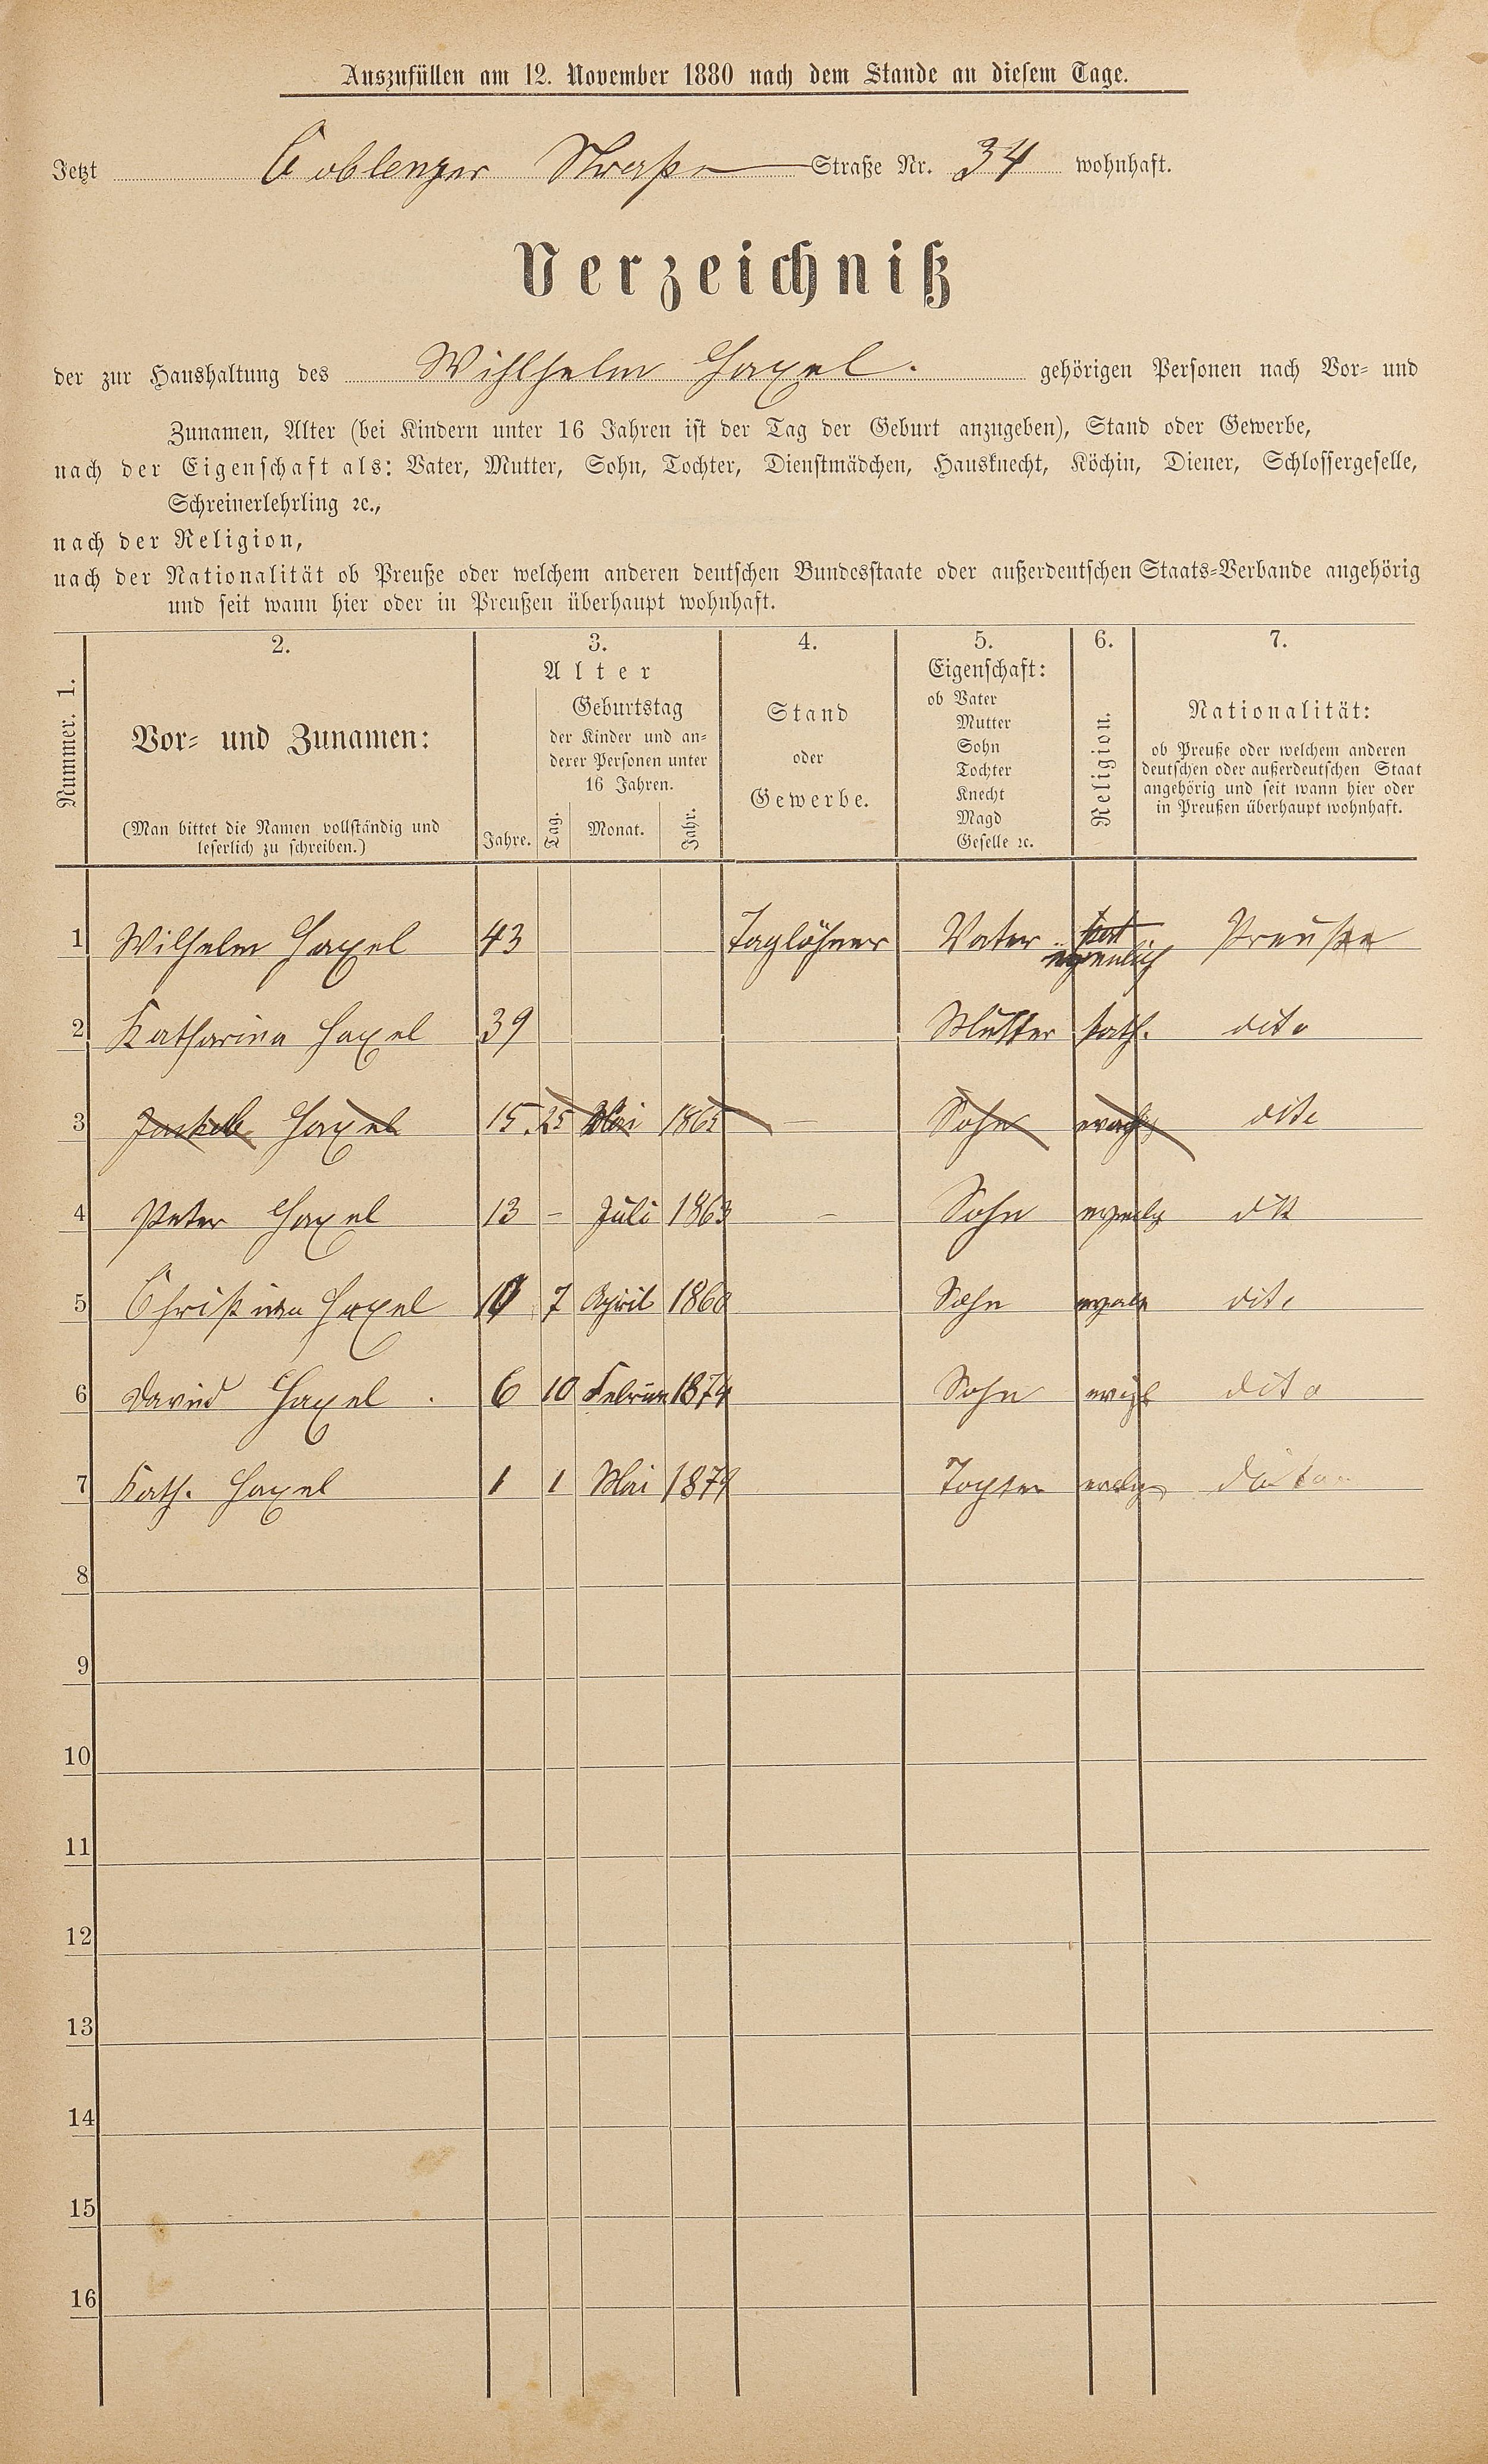 Auszufüllen am 12. November 1880 nach dem Stande an diesem Tage.
Jetzt Coblenzer Straße Straße Nr. 34 wohnhaft.
Verzeichniß
der zur Haushaltung des Wihlhelm Haxel. gehörigen Personen nach Vor- und
Zunamen, Alter (bei Kindern unter 16 Jahren ist der Tag der Geburt anzugeben), Stand oder Gewerbe,
nach der Eigenschaft als: Vater, Mutter, Sohn, Tochter, Dienstmädchen, Hausknecht, Köchin, Diener, Schlossergeselle,
Schreinerlehrling ꝛc.,
nach der Religion,
nach der Nationalität ob Preuße oder welchem anderen deutschen Bundesstaate oder außerdeutschen Staats-Verbande angehörig
und seit wann hier oder in Preußen überhaupt wohnhaft.
Nummer. 1.
2.
Vor- und Zunamen:
(Man bittet die Namen vollständig und
leserlich zu schreiben.)
3.
Alter
Jahre.
Geburtstag
der Kinder und an-
derer Personen unter
16 Jahren.
Tag. Monat. Jahr.
4.
Stand
oder
Gewerbe.
5.
Eigenschaft:
ob Vater
Mutter
Sohn
Tochter
Knecht
Magd
Geselle ꝛc.
6.
Religion.
7.
Nationalität:
ob Preuße oder welchem anderen
deutschen oder außerdeutschen Staat
angehörig und seit wann hier oder
in Preußen überhaupt wohnhaft.
1 Wilhelm Haxel 43 Taglöhner Vater Preuße
2 Katharina Haxel 39 Mutter kath. dito
3 Haxel 15 25 Mai 1865 — Sohn dito
4 Peter Haxel 13 – Juli 1863 – Sohn
5 Christian Haxel 7 April 1860 Sohn dito
6 David Haxel . 6 10 Februar 1874 Sohn dito
7 Kath. Haxel 1 1 Mai 1879 Tochter
8
9
10
11
12
13
14
15
16